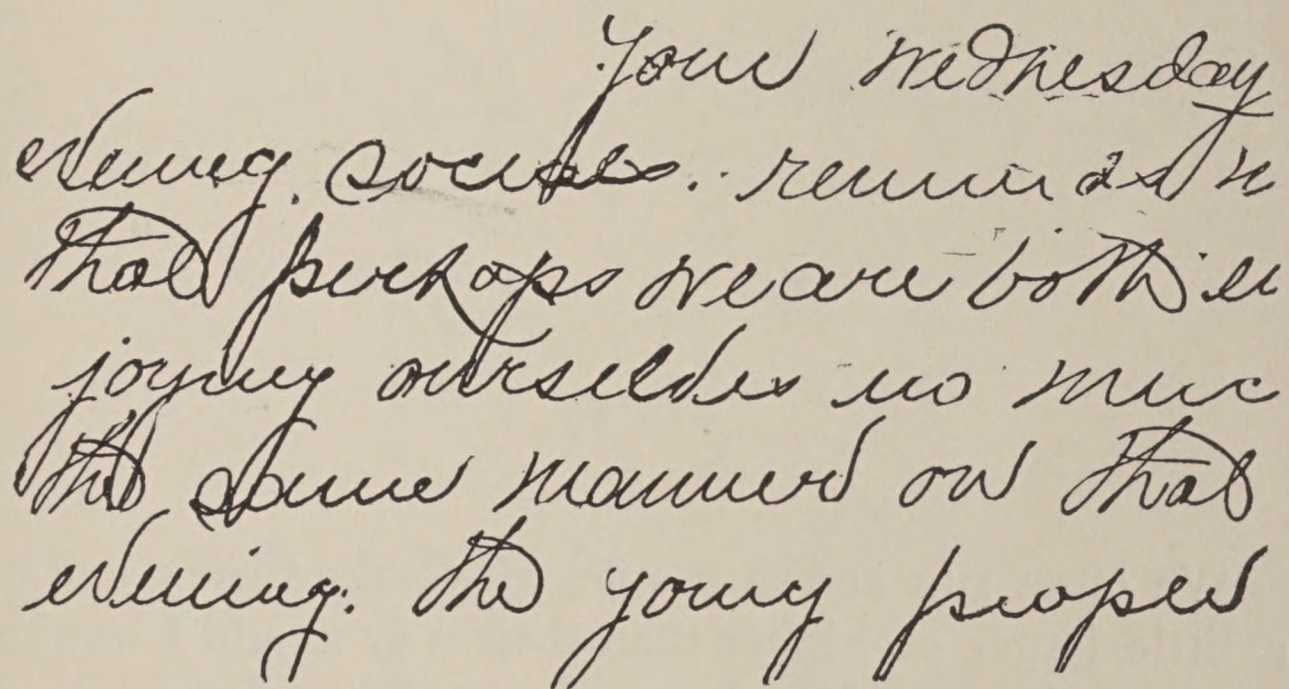 Your Wednesday
evening socials. reminds
that perhaps we are both en
joying ourselves no muc
the same manner on that
evening. The young people